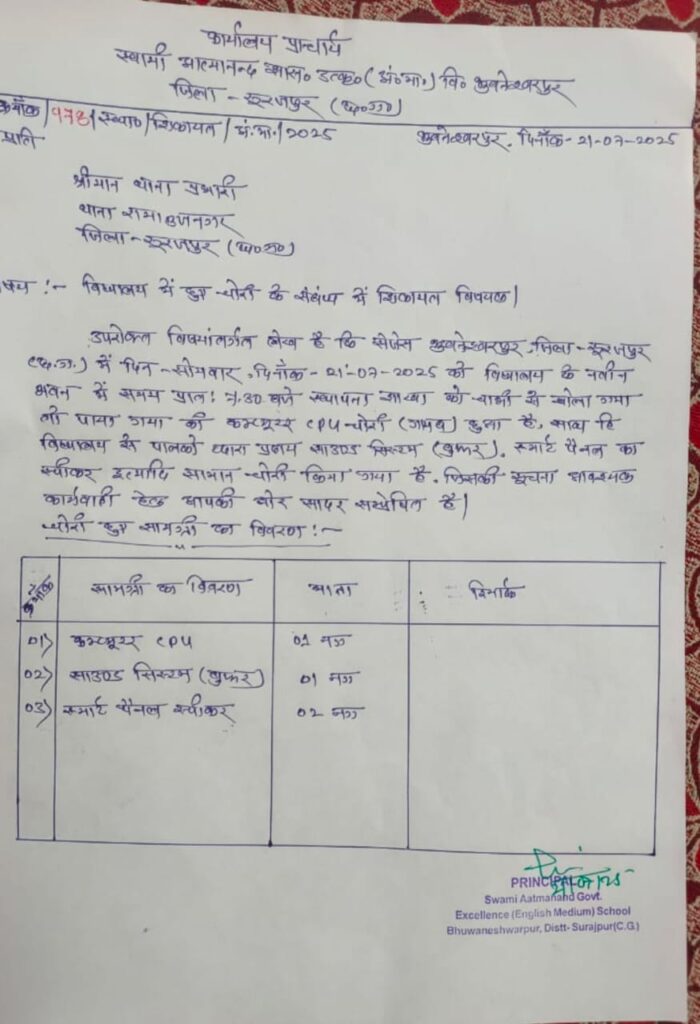 कार्यालय प्राचार्य
स्वामी आत्मानन्द शास० उत्कृ० (अं०मा०) वि० भुवनेश्वरपुर
जिला - सूरजपुर (छ०ग०)
क्रमांक / 178 / स्था० / शिकायत / अं.मा. / 2025 भुवनेश्वरपुर, दिनाँक - 21-07-2025
प्रति
श्रीमान थाना प्रभारी
थाना रामानुजनगर
जिला - सूरजपुर (छ०ग०)
षय :- विद्यालय में हुए चोरी के संबंध में शिकायत विषयक।
उपरोक्त विषयांतर्गत लेख है कि सेजेस भुवनेश्वरपुर, जिला - सूरजपुर
(छ.ग.) में दिन - सोमवार, दिनाँक - 21-07-2025 को विद्यालय के नवीन
भवन में समय प्रातः 7.30 बजे स्थापना शाखा को चाभी से खोला गया
तो पाया गया की कम्प्यूटर CPU चोरी (गायब) हुआ है, साथ हि
विद्यालय के पालको द्वारा प्रदाय साउण्ड सिस्टम (वुफर), स्मार्ट पैनल का
स्पीकर इत्यादि सामान चोरी किया गया है, जिसकी सूचना आवश्यक
कार्यवाही हेतु आपकी ओर सादर सम्प्रेषित है।
चोरी हुए सामग्री का विवरण :-
क्रमांक सामग्री का विवरण मात्रा रिमार्क
01) कम्प्यूटर CPU 01 नग
02) साउण्ड सिस्टम (वुफर) 01 नग
03) स्मार्ट पैनल स्पीकर 02 नग
PRINCIPAL
Swami Aatmanand Govt.
Excellence (English Medium) School
Bhuwaneshwarpur, Distt- Surajpur(C.G.)